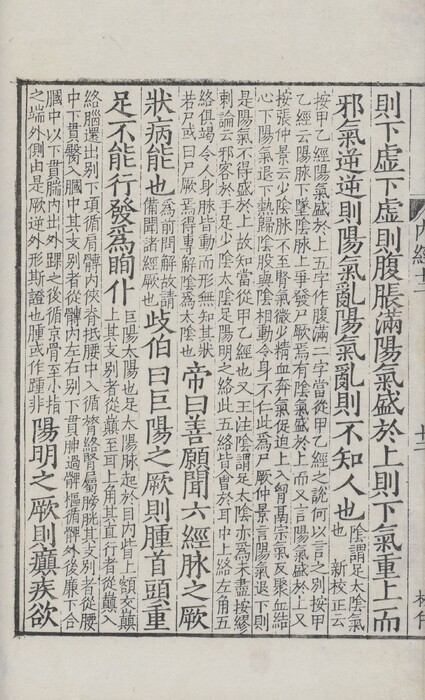 則下虛下虛則腹脹滿陽氣盛於上則下氣重上而
邪氣逆逆則陽氣亂陽氣亂則不知人也
陰謂足太陰氣
也　新校正云
按甲乙經陽氣盛於上五字作腹滿二字當從甲乙經之說何以言之別按甲
乙經云陽脉下墜陰脉上爭發尸厥焉有陰氣盛於上而又言陽氣盛於上又
按張仲景云少陰脉不至腎氣微少精血奔氣促迫上入胷鬲宗氣反聚血結
心下陽氣退下熱歸陰股與陰相動令身不仁此爲尸厥仲景言陽氣退下則
是陽氣不得盛於上故知當從甲乙經也又王注陰謂足太陰亦爲未盡按繆
刺論云邪客於手足少陰太陰足陽明之絡此五絡皆會於耳中上絡左角五
絡俱竭令人身脉皆動而形無知其狀
若尸或曰尸厥焉得專解陰爲太陰也
帝曰善願聞六經脉之厥
狀病能也
爲前問解故請
備聞諸經厥也
歧伯曰巨陽之厥則腫首頭重
足不能行發爲眴仆
巨陽太陽也足太陽脉起於目內眥上額交巔
上其支別者從巔至耳上角其直行者從巔入
絡腦還出別下項循肩髆內俠脊抵腰中入循膂絡腎屬膀胱其支別者從腰
中下貫臀入膕中其支別者從髆內左右別下貫胂過髀樞循髀外後廉下合
膕中以下貫腨內出外踝之後循京骨至小指
之端外側由是厥逆外形斯證也腫或作踵非
陽明之厥則癲疾欲